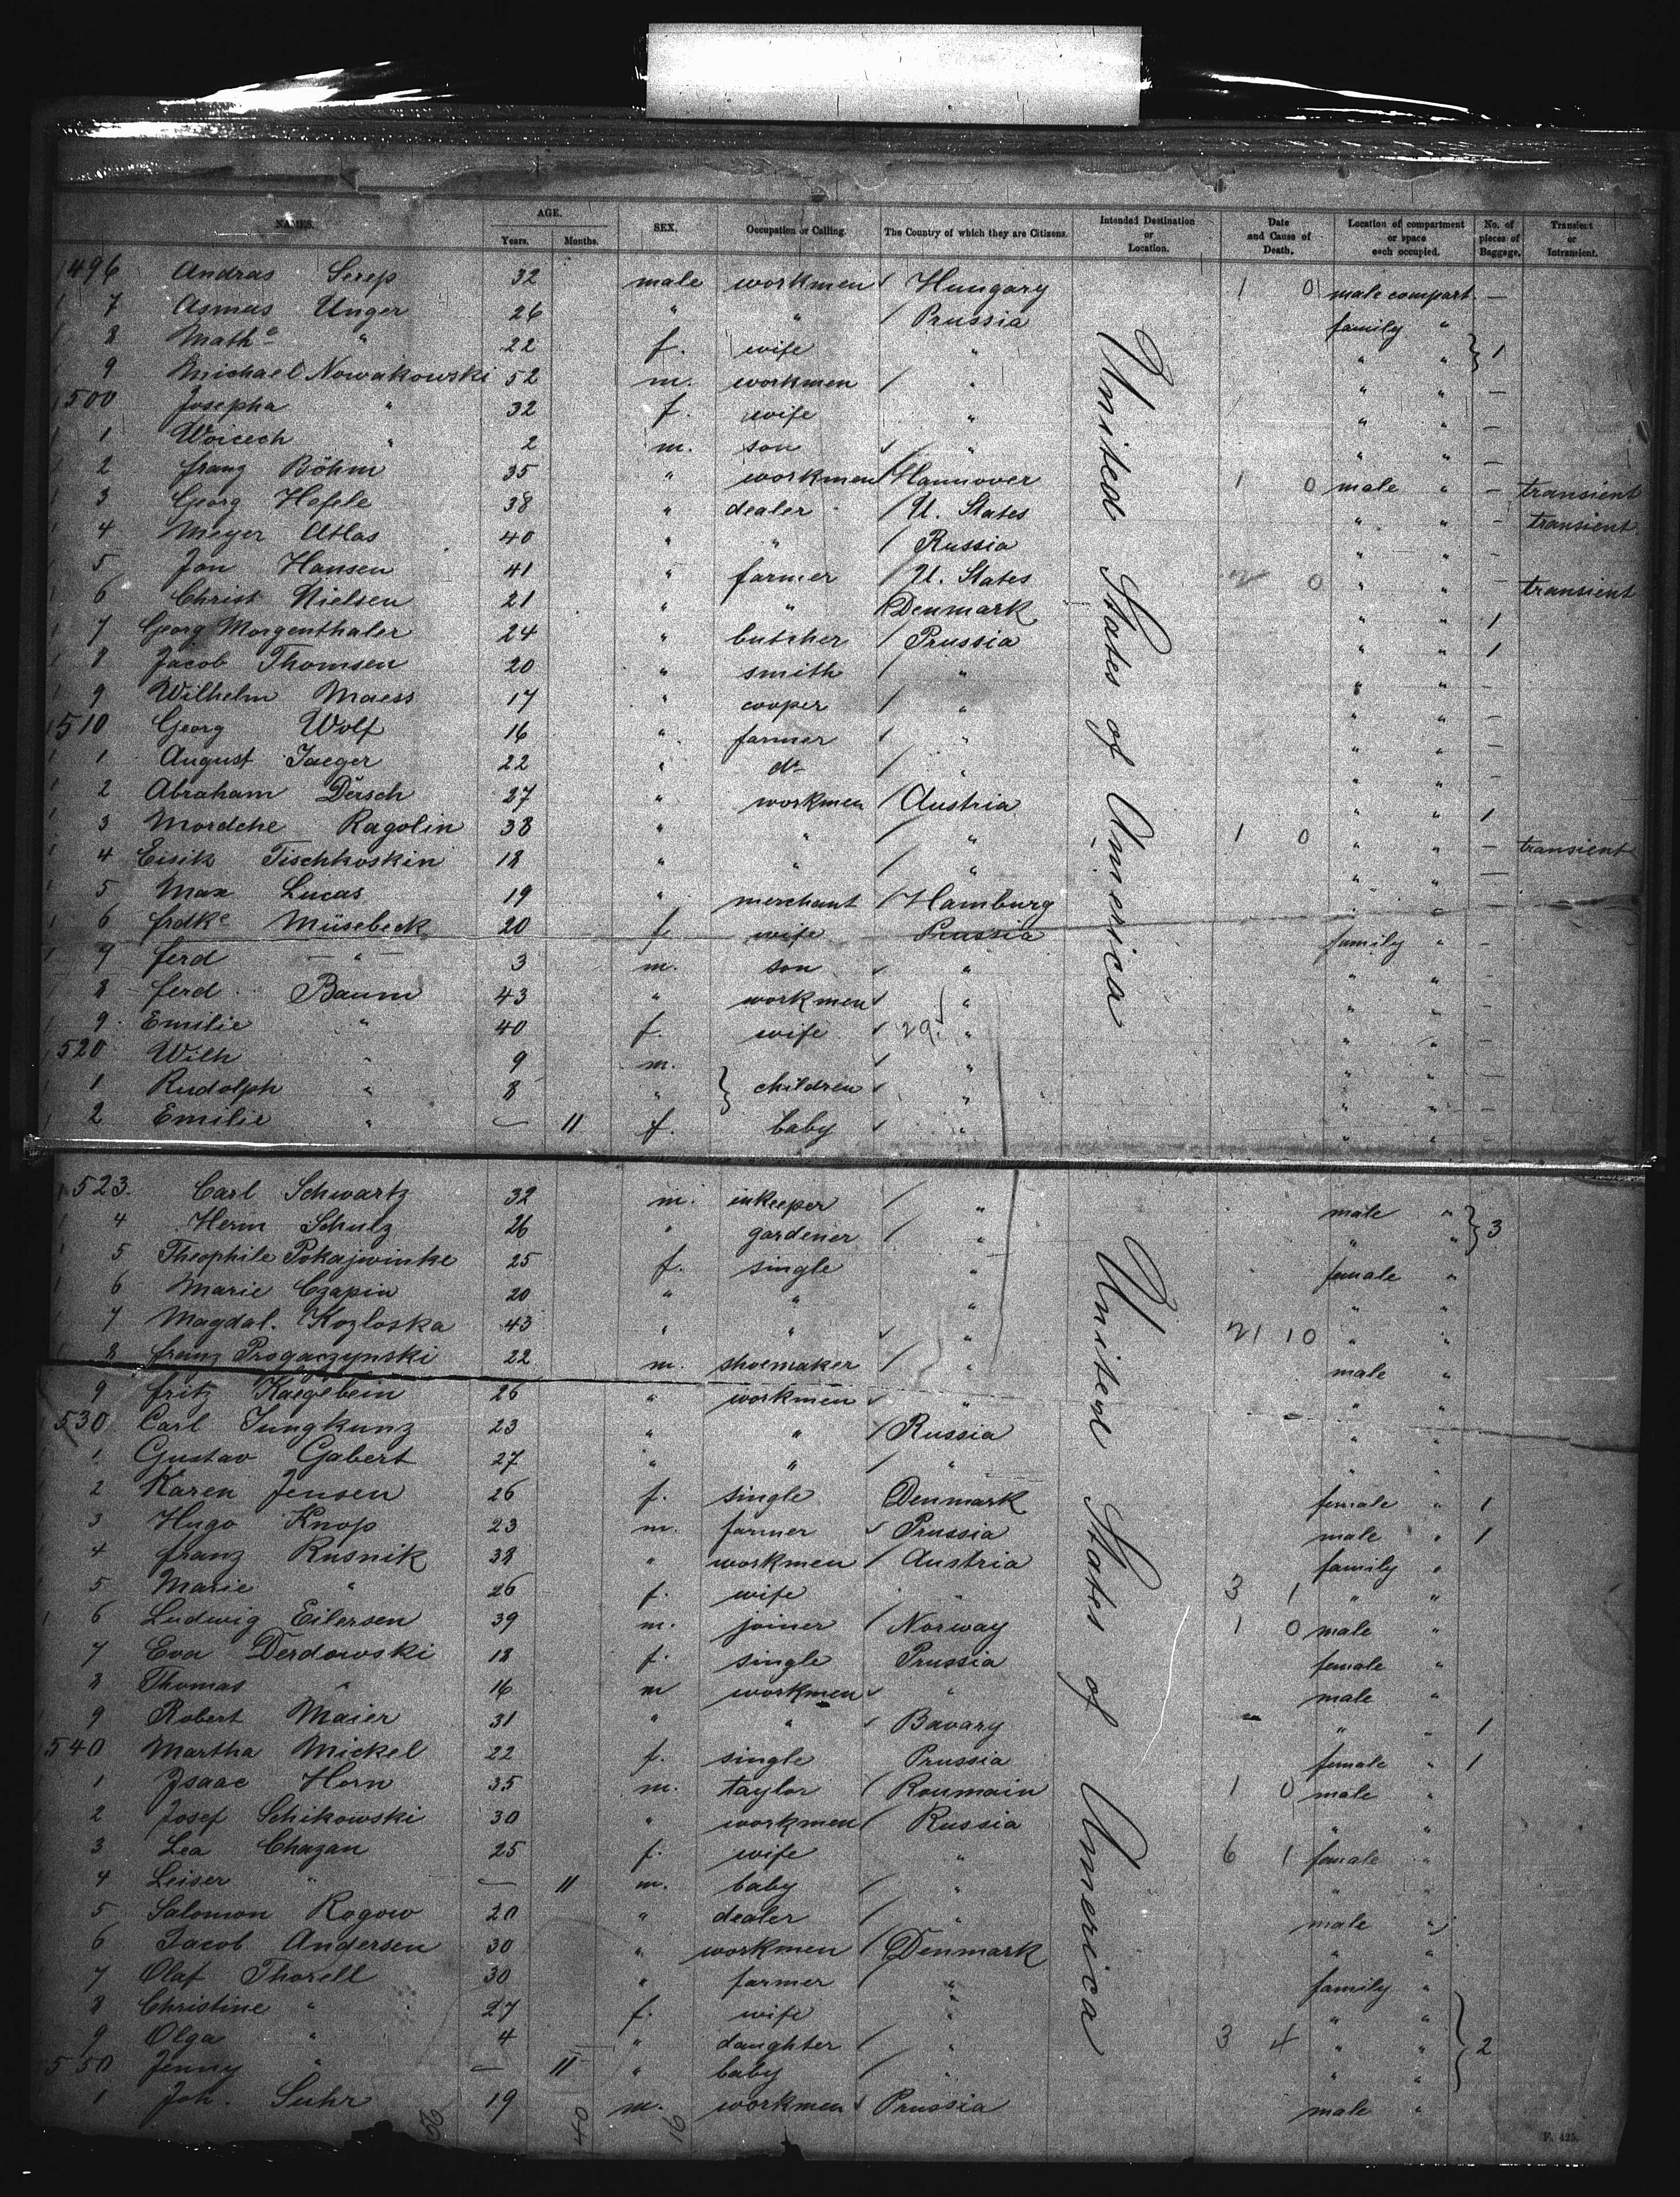 NAMES. AGE. Years. Months. SEX. Occupation or Calling. The Country of which they are Citizens. Intended Destination or Location. Date and Cause of Death. Location of compartment or space each occupied. No. of pieces of Baggage. Transient or Intransient.
496 Andras Serep 32 male workmen Hungary 1 0 male compart. —
7 Asmus Unger 26 " " Prussia family "
8 Mathe " 22 f. wife " " " } 1
9 Michael Nowakowski 52 m. workmen " " " —
500 Josepha " 32 f. wife " " " —
1 Woicech " 2 m. son " " " —
2 franz Böhm 35 " workmen Hannover 1 0 male " — transient
3 Georg Hefele 38 " dealer U. States " " - transient
4 Meyer Atlas 40 " " Russia " " -
5 Jon Hansen 41 " farmer U. States 2 0 " " - transient
6 Christ Nielsen 21 " " Denmark " " 1
7 Georg Morgenthaler 24 " butcher Prussia " " 1
8 Jacob Thomsen 20 " smith " " " -
9 Wilhelm Maess 17 " cooper " " " -
510 Georg Wolf 16 " farmer " " " -
1 August Jaeger 22 " do " " " -
2 Abraham Dersch 27 " workmen Austria " " 1
3 Mordche Ragolin 38 " " " 1 0 " " — transient
4 Eisik Tischkoskin 18 " " " " " —
5 Max Lucas 19 " merchant Hamburg " " -
6 frdke Müsebeck 20 f. wife Prussia family " -
7 ferd — " — 3 m. son " " " -
8 ferd Baum 43 " workmen " " " -
9 Emilie " 40 f. wife 29 " " " -
520 Wilh " 9 m. " " " -
1 Rudolph " 8 " } children " " " -
2 Emilie " — 11 f. baby " " "
United States of America
523. Carl Schwartz 32 m. inkeeper " male "
4 Herm Schulz 26 " gardener " " " } 3
5 Theophile Pokajwinke 25 f. single " female "
6 Marie Czapin 20 " " " " "
7 Magdal. Kozloska 43 " " " 21 10 " "
8 franz Progaczynski 22 m. shoemaker " male "
9 fritz Kaegebein 26 " workmen " " "
530 Carl Jungkunz 23 " " Russia " "
1 Gustav Gabert 27 " " " " "
2 Karen Jensen 26 f. single Denmark female " 1
3 Hugo Knop 23 m. farmer Prussia male " 1
4 franz Rusnik 38 " workmen Austria family "
5 Marie " 26 f. wife " 3 1 " "
6 Ludwig Eilersen 39 m. joiner Norway 1 0 male "
7 Eva Derdowski 18 f. single Prussia female "
8 Thomas " 16 m workmen " male "
9 Robert Maier 31 " " Bavary " " 1
540 Martha Mickel 22 f. single Prussia female " 1
1 Isaac Horn 35 m. taylor Roumain 1 0 male "
2 Josef Schikowski 30 " workmen Russia " "
3 Lea Chazan 25 f. wife " 6 1 female "
4 Leiser " — 11 m. baby " " "
5 Salomon Rogow 20 " dealer " male "
6 Jacob Andersen 30 " workmen Denmark " "
7 Olaf Thorell 30 " farmer " family "
8 Christine " 27 f. wife " " "
9 Olga " 4 " daughter " 3 4 " " } 2
550 Jenny " — 11 " baby " " "
1 Joh. Suhr 19 m. workmen Prussia male "
United States of America
40 16
F. 425.